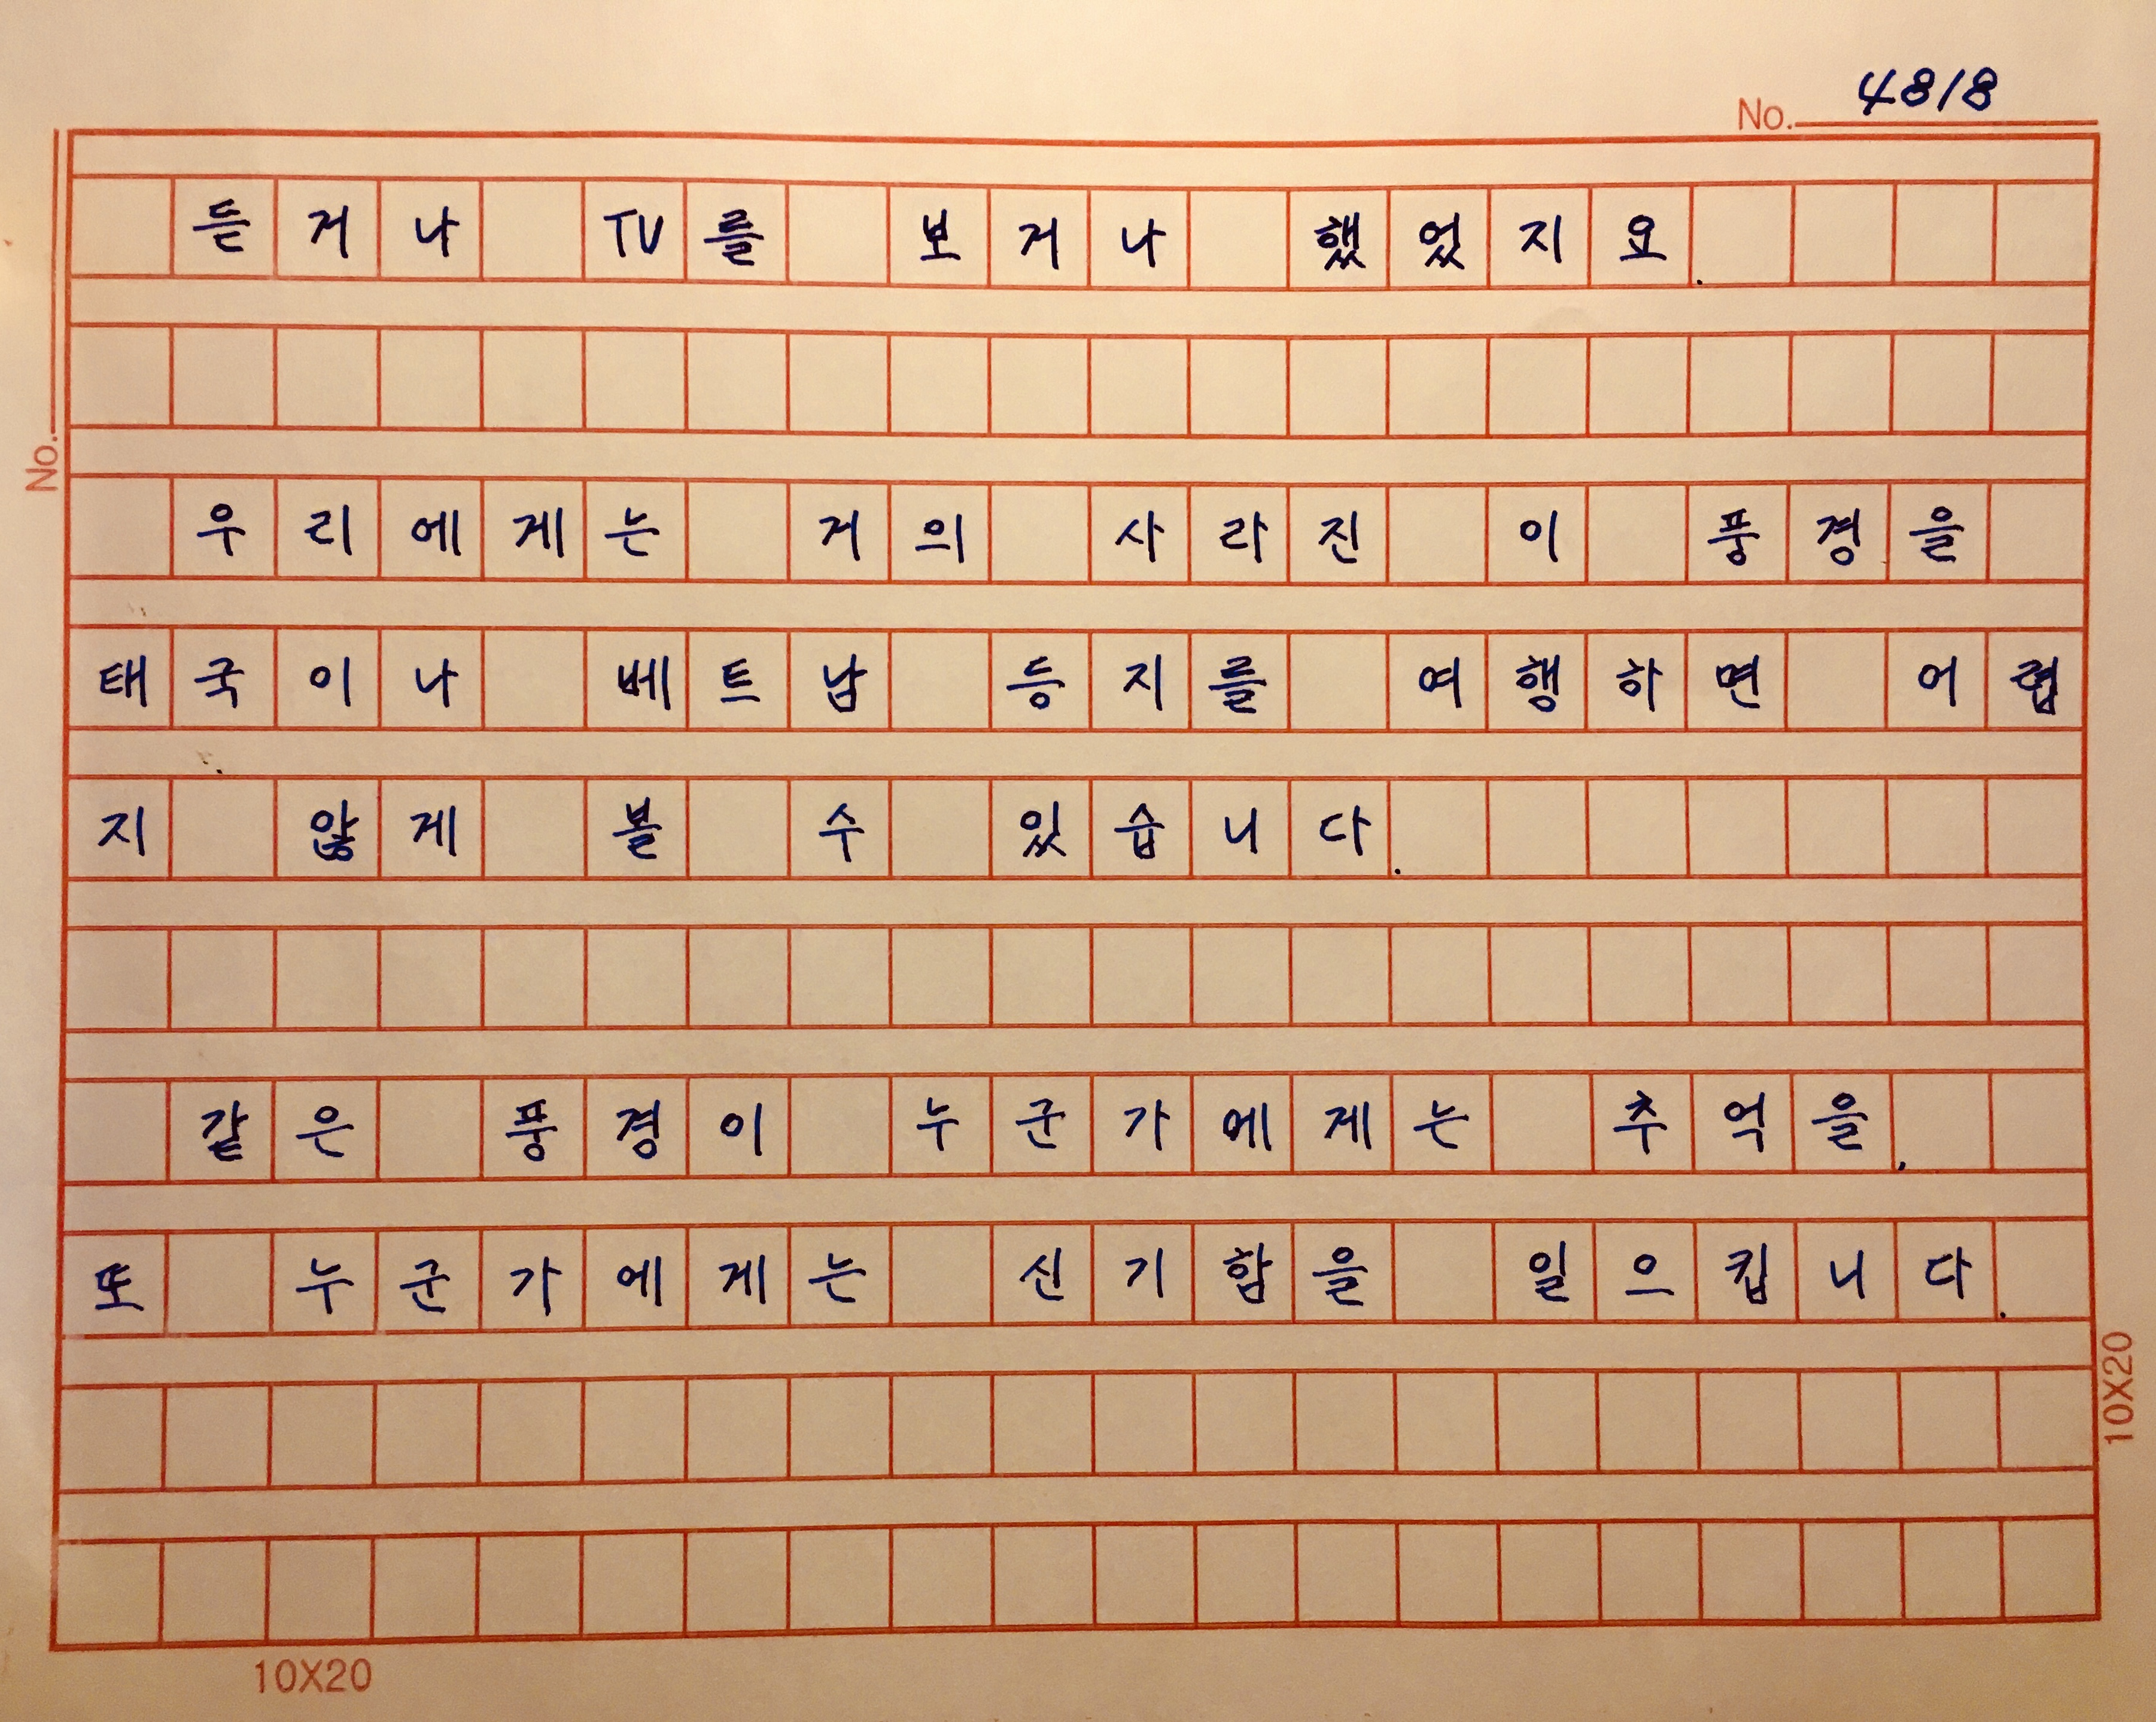 No. 4818
듣거나 TV를 보거나 했었지요.
No.
우리에게는 거의 사라진 이 풍경을
태국이나 베트남 등지를 여행하면 어렵
지 않게 볼 수 있습니다.
같은 풍경이 누군가에게는 추억을,
또 누군가에게는 신기함을 일으킵니다.
10X20
10X20